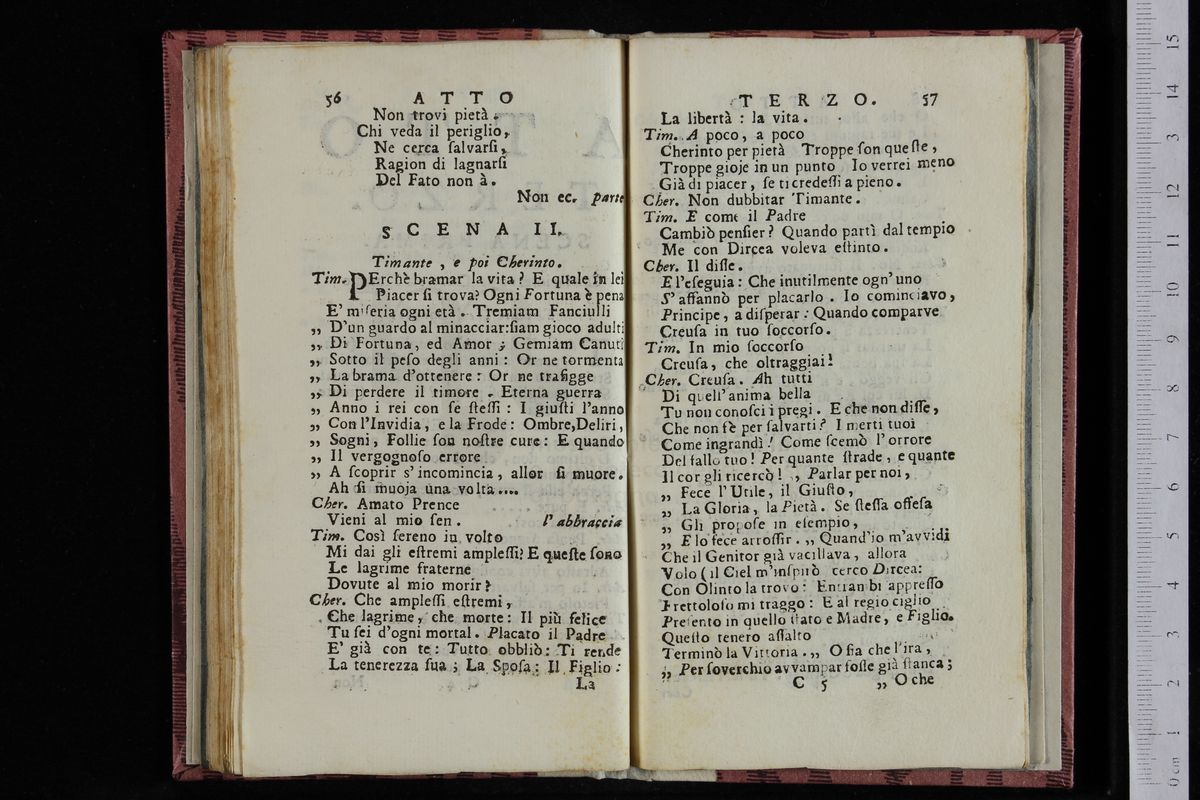 56 ATTO
Non trovi pietà.
Chi veda il periglio,
Ne cerca ſalvarſi,
Ragion di lagnarſi
Del Fato non à.
Non ec. parte
SCENA II.
Timante, e poi Cherinto.
Tim. PErchè bramar la vita? E quale in lei
Piacer ſi trova? Ogni Fortuna è pena
E' miſeria ogni età. Tremiam Fanciulli
,, D'un guardo al minacciar: ſiam gioco adulti
,, Di Fortuna, ed Amor; Gemiam Canuti
,, Sotto il peſo degli anni: Or ne tormenta
,, La brama d'ottenere: Or ne trafigge
,, Di perdere il timore. Eterna guerra
,, Anno i rei con ſe ſteſſi: I giuſti l'anno
,, Con l'Invidia, e la Frode: Ombre, Deliri,
,, Sogni, Follie ſou noſtre cure: E quando
,, Il vergognoſo errore
,, A ſcoprir s'incomincia, allor ſi muore.
Ah ſi muoja una volta....
Cher. Amato Prence
Vieni al mio ſen. l'abbraccia
Tim. Così ſereno in volto
Mi dai gli eſtremi ampleſſi? E queſte ſono
Le lagrime fraterne
Dovute al mio morir?
Cher. Che ampleſſi eſtremi,
Che lagrime, che morte: Il più felice
Tu ſei d'ogni mortal. Placato il Padre
E' già con te: Tutto obbliò: Ti rende
La tenerezza ſua; La Spoſa: Il Figlio:
La
TERZO. 57
La libertà: la vita.
Tim. A poco, a poco
Cherinto per pietà Troppe ſon queſte,
Troppe gioje in un punto Io verrei meno
Già di piacer, ſe ti credeſſi a pieno.
Cher. Non dubbitar Timante.
Tim. E come il Padre
Cambiò penſier? Quando partì dal tempio
Me con Dircea voleva eſtinto.
Cher. Il diſſe.
E l'eſeguia: Che inutilmente ogn'uno
S'affannò per placarlo. Io cominciavo,
Principe, a diſperar: Quando comparve
Creuſa in tuo ſoccorſo.
Tim. In mio ſoccorſo
Creuſa, che oltraggiai!
Cher. Creuſa. Ah tutti
Di quell'anima bella
Tu non conoſci i pregi. E che non diſſe,
Che non fè per ſalvarti? I merti tuoi
Come ingrandì! Come ſcemò l'orrore
Del fallo tuo! Per quante ſtrade, e quante
Il cor gli ricercò! ,, Parlar per noi,
,, Fece l'Utile, il Giuſto,
,, La Gloria, la Pietà. Se ſteſſa offeſa
,, Gli propoſe in eſempio,
,, E lo fece arroſſir. ,, Quand'io m'avvidi
Che il Genitor già vacillava, allora
Volo (il Ciel m'inſpirò cerco Dircea:
Con Olinto la trovo: Entrambi appreſſo
Frettoloſo mi traggo: E al regio ciglio
Preſento in quello ſtato e Madre, e Figlio.
Queſto tenero aſſalto
Terminò la Vittoria. ,, O ſia che l'ira,
,, Per ſoverchio avvampar foſſe già ſtanca;
C 5 ,, O che
0 cm 1 2 3 4 5 6 7 8 9 10 11 12 13 14 15